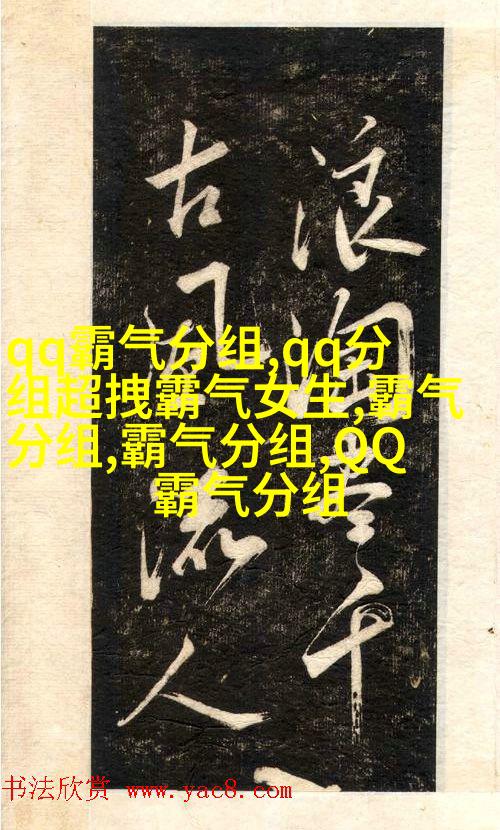 浪淘尽千
古风流人
qq霸气分组,qq分
组超拽霸气女生,霸气
分组,霸气分组,QQ
霸气分组
书法欣赏 www.yac8.com